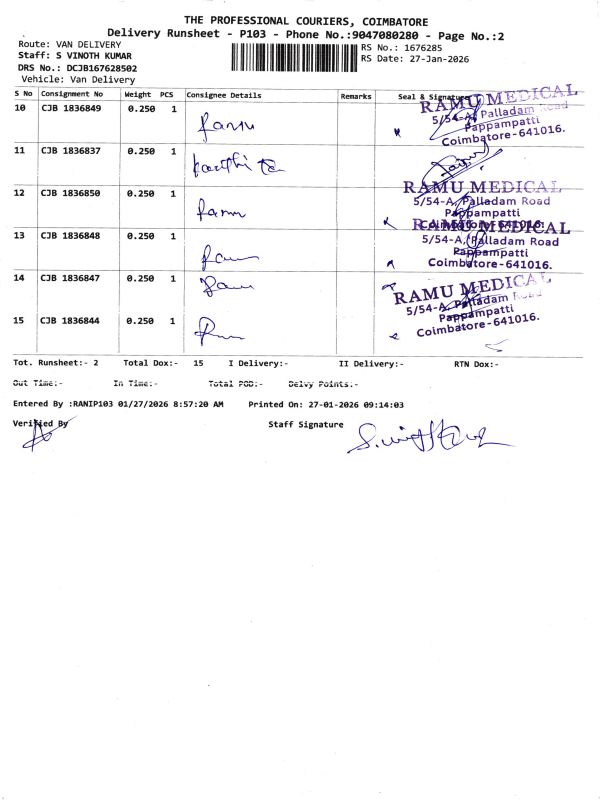 THE PROFESSIONAL COURIERS, COIMBATORE
Delivery Runsheet - P103 - Phone No.:9047080280 - Page No.:2
Route: VAN DELIVERY
Staff: S VINOTH KUMAR
DRS No.: DCJB167628502
Vehicle: Van Delivery
RS No.: 1676285
RS Date: 27-Jan-2026
S No Consignment No Weight PCS Consignee Details Remarks Seal & Signature
10 CJB 1836849 0.250 1 Ramu
RAMU MEDICAL
5/54-A, Palladam Road
Pappampatti
Coimbatore-641016.
11 CJB 1836837 0.250 1
RAMU MEDICAL
5/54-A, Palladam Road
Pappampatti
Coimbatore-641016.
12 CJB 1836850 0.250 1 Ramu
RAMU MEDICAL
5/54-A, Palladam Road
Pappampatti
Coimbatore-641016.
13 CJB 1836848 0.250 1
14 CJB 1836847 0.250 1
RAMU MEDICAL
5/54-A, Palladam Road
Pappampatti
Coimbatore-641016.
15 CJB 1836844 0.250 1
Tot. Runsheet:- 2 Total Dox:- 15 I Delivery:- II Delivery:- RTN Dox:-
Out Time:- In Time:- Total POD:- Delvy Points:-
Entered By :RANIP103 01/27/2026 8:57:20 AM Printed On: 27-01-2026 09:14:03
Verified By Staff Signature